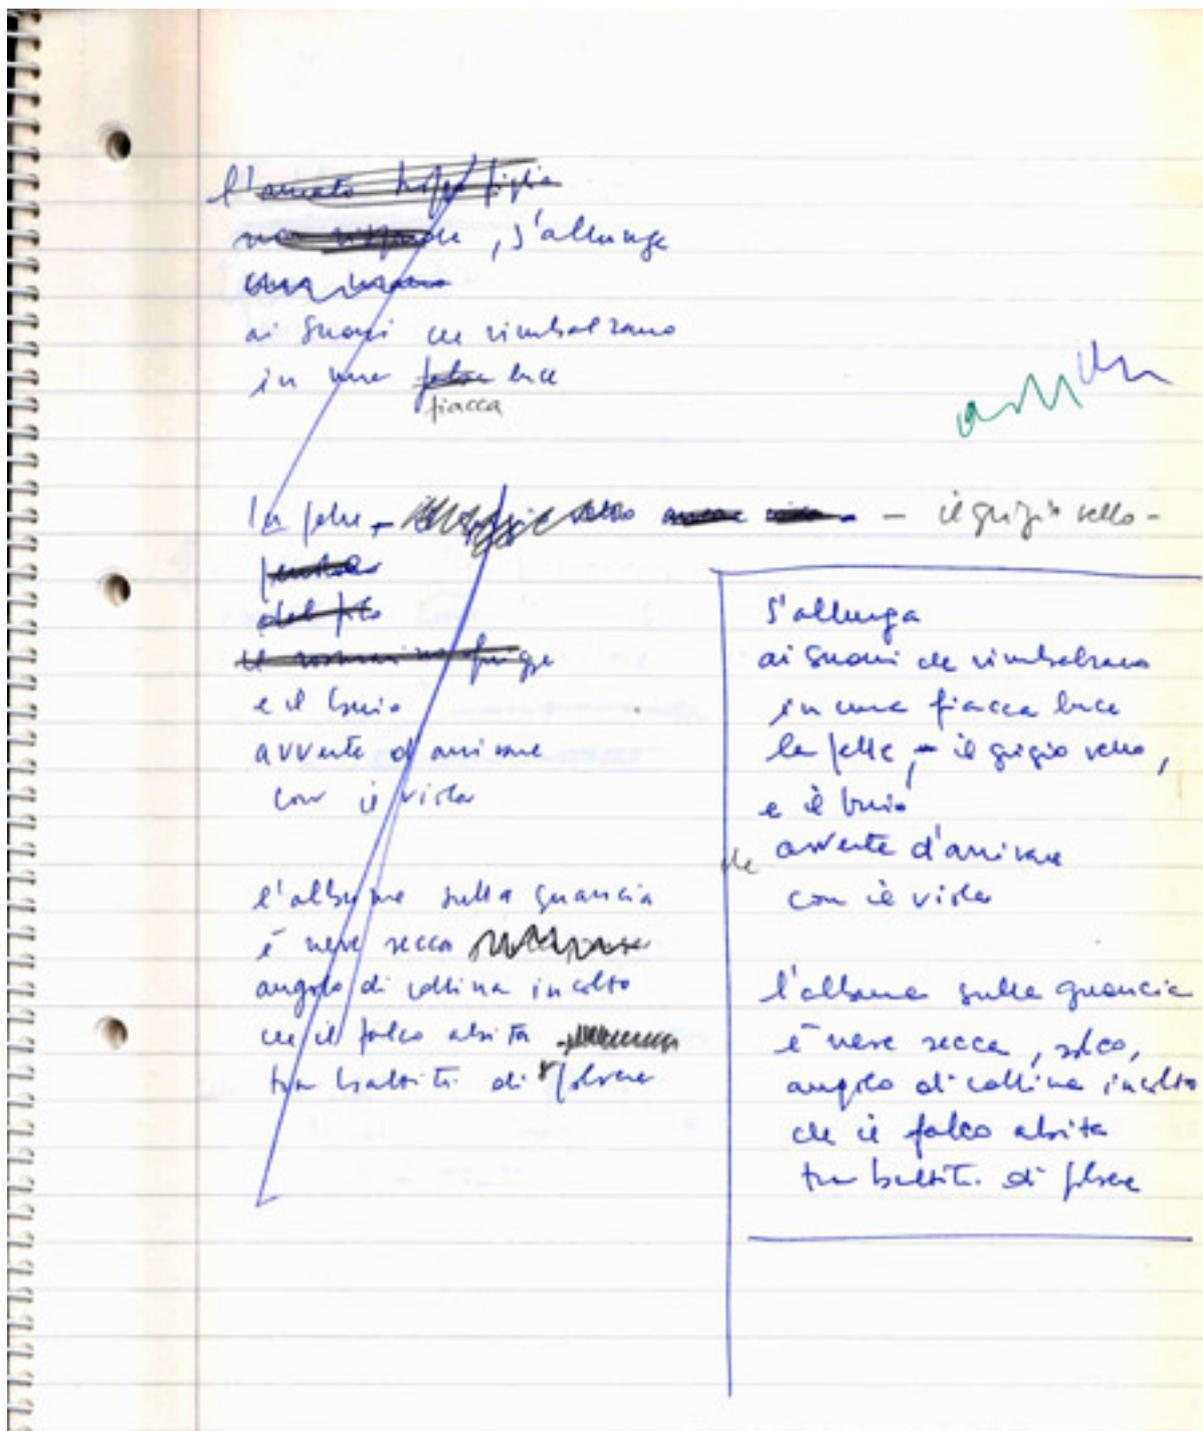 l'amato troppo figlio
, s'allunga
ai suoni che rimbalzano
in una falsa luce
fiacca
la pelle - il grigio vello -
del filo
il rosmarino frigge
e il buio
avverte d'arrivare
con il viola
l'albume sulla guancia
è neve secca
angolo di collina incolto
che il falco abita
tra battiti di polvere
s'allunga
ai suoni che rimbalzano
in una fiacca luce
la pelle, - il grigio vello,
e il buio
che avverte d'arrivare
con il viola
l'albume sulla guancia
è neve secca, solco,
angolo di collina incolto
che il falco abita
tra battiti di polvere